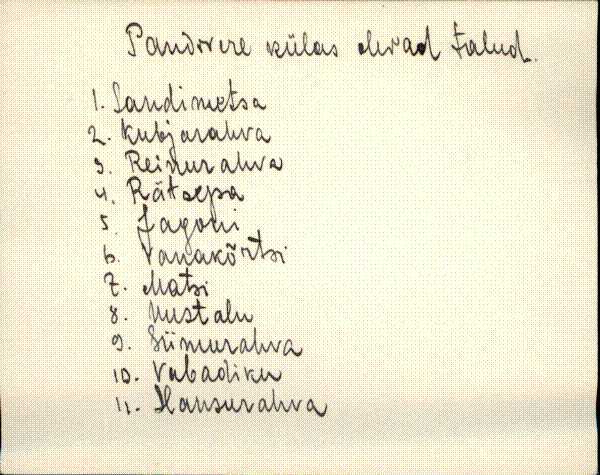 Pandivere külas olevad talud.
1. Sandimetsa
2. Kubjarahva
3. Reinurahva
4. Rätsepa
5. Jagomi
6. Vanakõrtsi
7. Matsi
8. Uustalu
9. Siimurahva
10. Vabadiku
11. Hansurahva